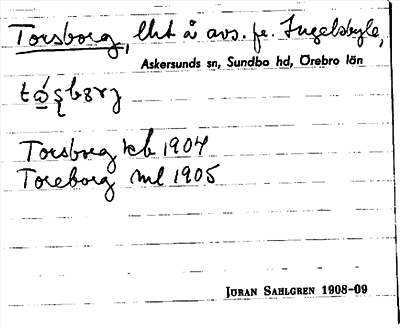 Torsborg, lht å avs. fr. Ingelsbyle,
Askersunds sn, Sundbo hd, Örebro län
Torsborg kb 1904
Toreborg ml 1905
Jöran Sahlgren 1908-09